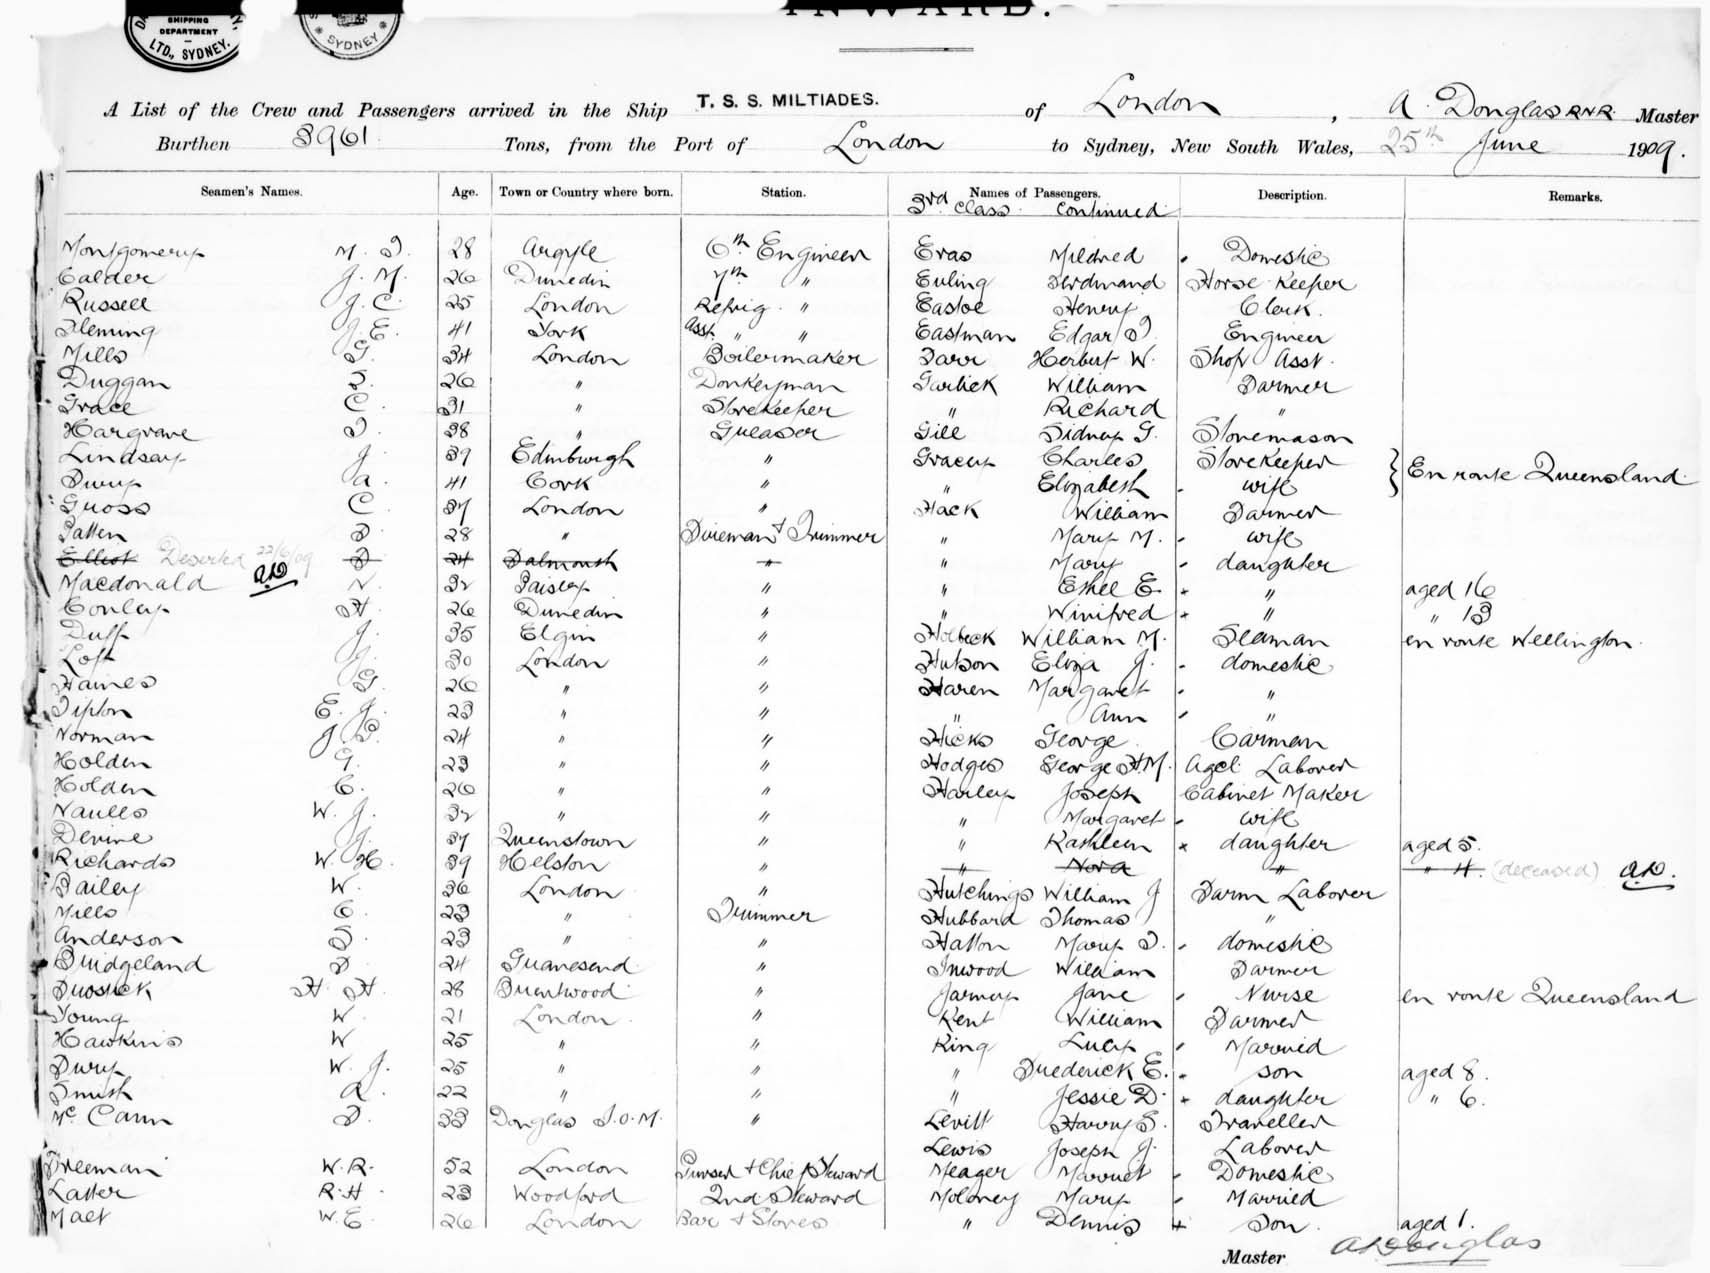 SHIPPING
DEPARTMENT
LTD., SYDNEY.
SYDNEY
INWARD.
A List of the Crew and Passengers arrived in the Ship T. S. S. MILTIADES. of London, A. Douglas RNR. Master
Burthen 3961. Tons, from the Port of London to Sydney, New South Wales, 25th June 1909.
Seamen's Names. Age. Town or Country where born. Station. Names of Passengers. Description. Remarks.
3rd Class Continued
Montgomery M. 28 Argyle 6th Engineer Eras Mildred Domestic
Calder J. M. 26 Dunedin 7th " Euling Ferdinand Horse Keeper
Russell J. C. 25 London Refrig. " Eastoe Henry Clerk.
Fleming J. E. 41 York Asst. " " Eastman Edgar J. Engineer
Mills G. 34 London Boilermaker Farr Herbert W. Shop Asst.
Duggan 26 " Donkeyman Garlick William Farmer
Grace C. 31 " Storekeeper " Richard "
Hargrave 38 " Greaser Gill Sidney G. Stonemason
Lindsay J. 39 Edinburgh " Gracey Charles Storekeeper } En route Queensland.
a. 41 Cork " " Elizabeth wife
Gross C. 37 London " Hack William Farmer
Patten 28 " Fireman & Trimmer " Mary M. wife
Elliot Deserted 22/6/09 AD 24 Falmouth " " Mary daughter
Macdonald N. 32 Paisley " " Ethel E. " aged 16
Conley H. 26 Dunedin " " Winifred " " 13
Duff J. 35 Elgin " Holbeck William M. Seaman en route Wellington.
Loft J. 30 London " Hutson Eliza J. domestic
Haines G. 26 " " Haren Margaret "
Tipton E. J. 23 " " " Ann "
Norman J. 24 " " Hicks George Carman
Holden G. 23 " " Hodges George H.M. Agcl. Laborer
Holden C. 26 " " Harley Joseph Cabinet Maker
Naulls W. J. 32 " " " Margaret wife
Devine J. 37 Queenstown " " Kathleen daughter aged 5.
Richards W. H. 39 Helston " " Nora " " 4. (deceased) AD.
Bailey W. 36 London " Hutchings William J Farm Laborer
Mills C. 23 " Trimmer Hubbard Thomas "
Anderson 23 " " Hatton Mary domestic
Bridgeland 24 Gravesend " Inwood William Farmer
H. H. 28 Brentwood " Jarmey Jane Nurse en route Queensland
Young W. 21 London " Kent William Farmer
Hawkins W 25 " " King Lucy Married
W. J. 25 " " " Frederick E. son aged 8.
Smith A. 22 " " " Jessie D. daughter " 6.
Mc Cann 33 Douglas I.O.M. " Levitt Harry S. Traveller
Lewis Joseph J. Laborer
Freeman W. R. 52 London Purser & Chief Steward Meager Harriet Domestic
Latter R. H. 23 Woodford 2nd Steward Moloney Mary Married
W. E. 26 London Bar & Stores " Dennis son. aged 1.
Master A Douglas